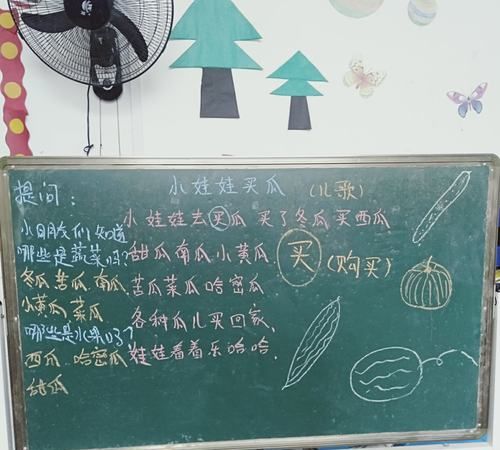 小娃娃买瓜 (儿歌)
小娃娃去买瓜 买了冬瓜买西瓜
甜瓜南瓜小黄瓜
苦瓜菜瓜哈密瓜
各种瓜儿买回家,
娃娃看着乐哈哈.
买 (购买)
提问:
小朋友们知道
哪些是蔬菜吗?
冬瓜 苦瓜. 南瓜.
小黄瓜. 菜瓜
哪些是水果吗?
西瓜. 哈密瓜
甜瓜